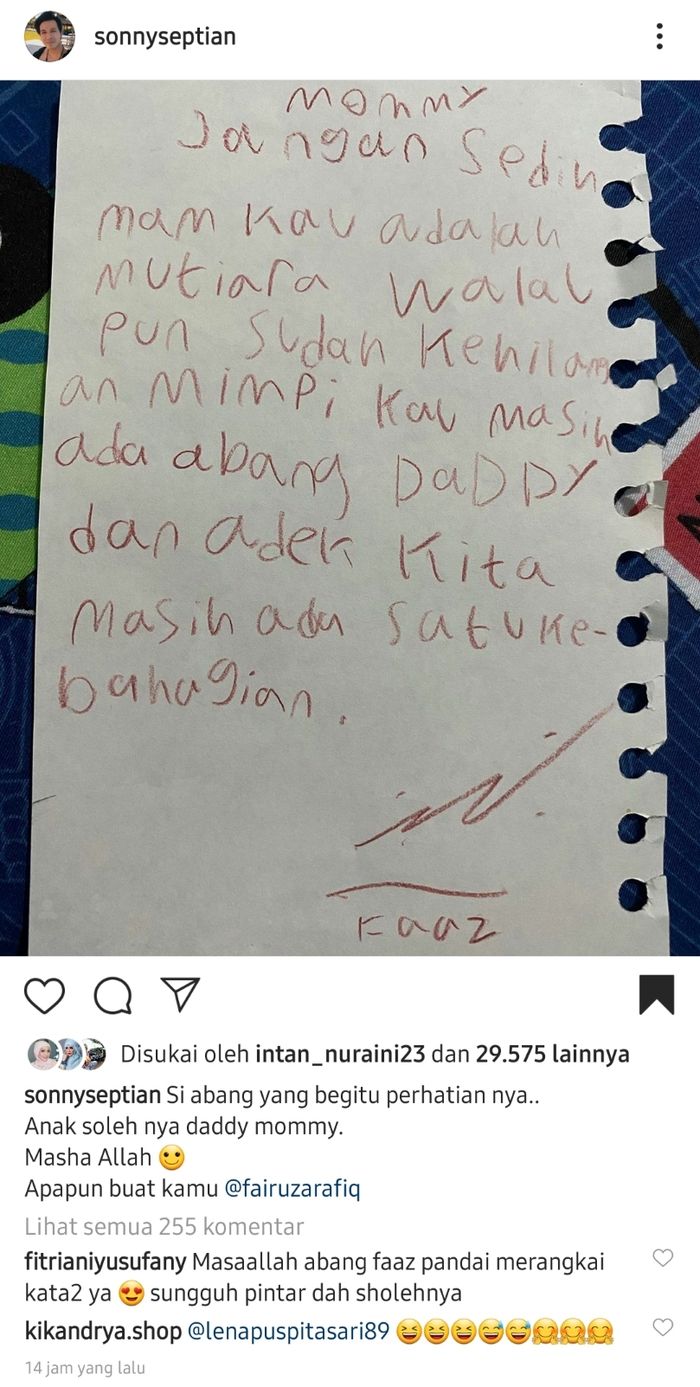 sonnyseptian
MOMMY
Jangan Sedih
mam kau adalah
Mutiara walau
pun Sudah Kehilang
an Mimpi kau Masih
ada abang DaDDY
dan adek Kita
Masih ada Satu ke-
bahagian.
Faaz
Disukai oleh intan_nuraini23 dan 29.575 lainnya
sonnyseptian Si abang yang begitu perhatian nya..
Anak soleh nya daddy mommy.
Masha Allah 🙂
Apapun buat kamu @fairuzarafiq
Lihat semua 255 komentar
fitrianiyusufany Masaallah abang faaz pandai merangkai
kata2 ya 😍 sungguh pintar dah sholehnya
kikandrya.shop @lenapuspitasari89 😆😆😆😅😅🤗🤗🤗
14 jam yang lalu